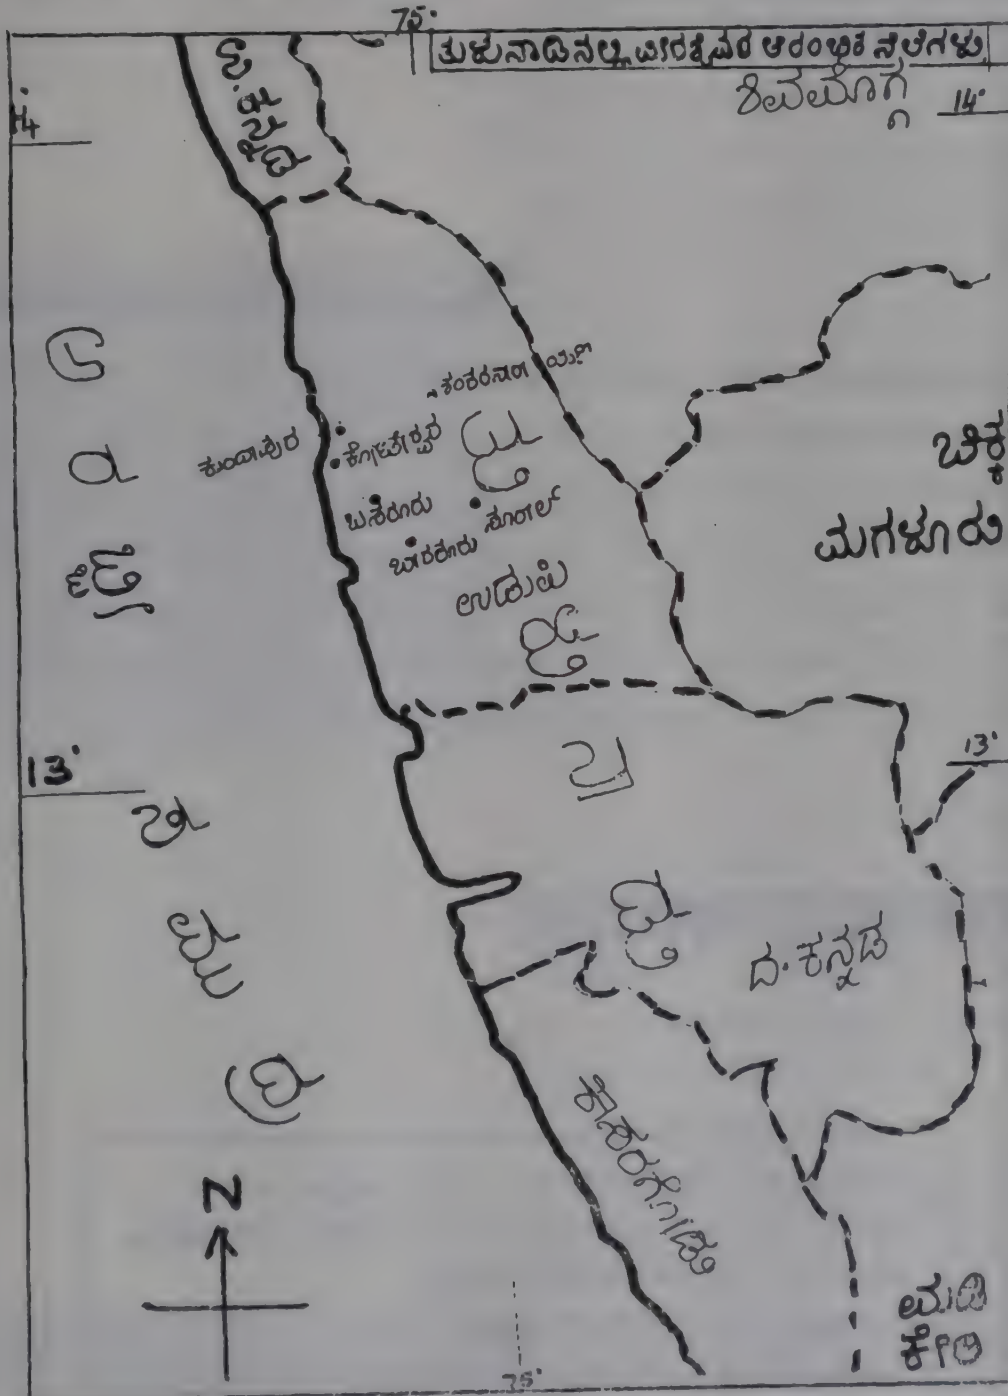 75°
ತುಳುನಾಡಿನಲ್ಲಿ ವೀರಶೈವರ ಆರಂಭಿಕ ನೆಲೆಗಳು
ಶಿವಮೊಗ್ಗ
14°
14°
ಉ.ಕನ್ನಡ
ಶಂಕರನಾರಾಯಣ
ಕುಂದಾಪುರ
ಕೋಟೇಶ್ವರ
ಬಸರೂರು
ಬಾರಕೂರು
ಉಡುಪಿ
ಚಿಕ್ಕ
ಮಗಳೂರು
13°
13°
ದ.ಕನ್ನಡ
ಕಾಸರಗೋಡು
ಮಡಿ
ಕೇರಿ
N
75°